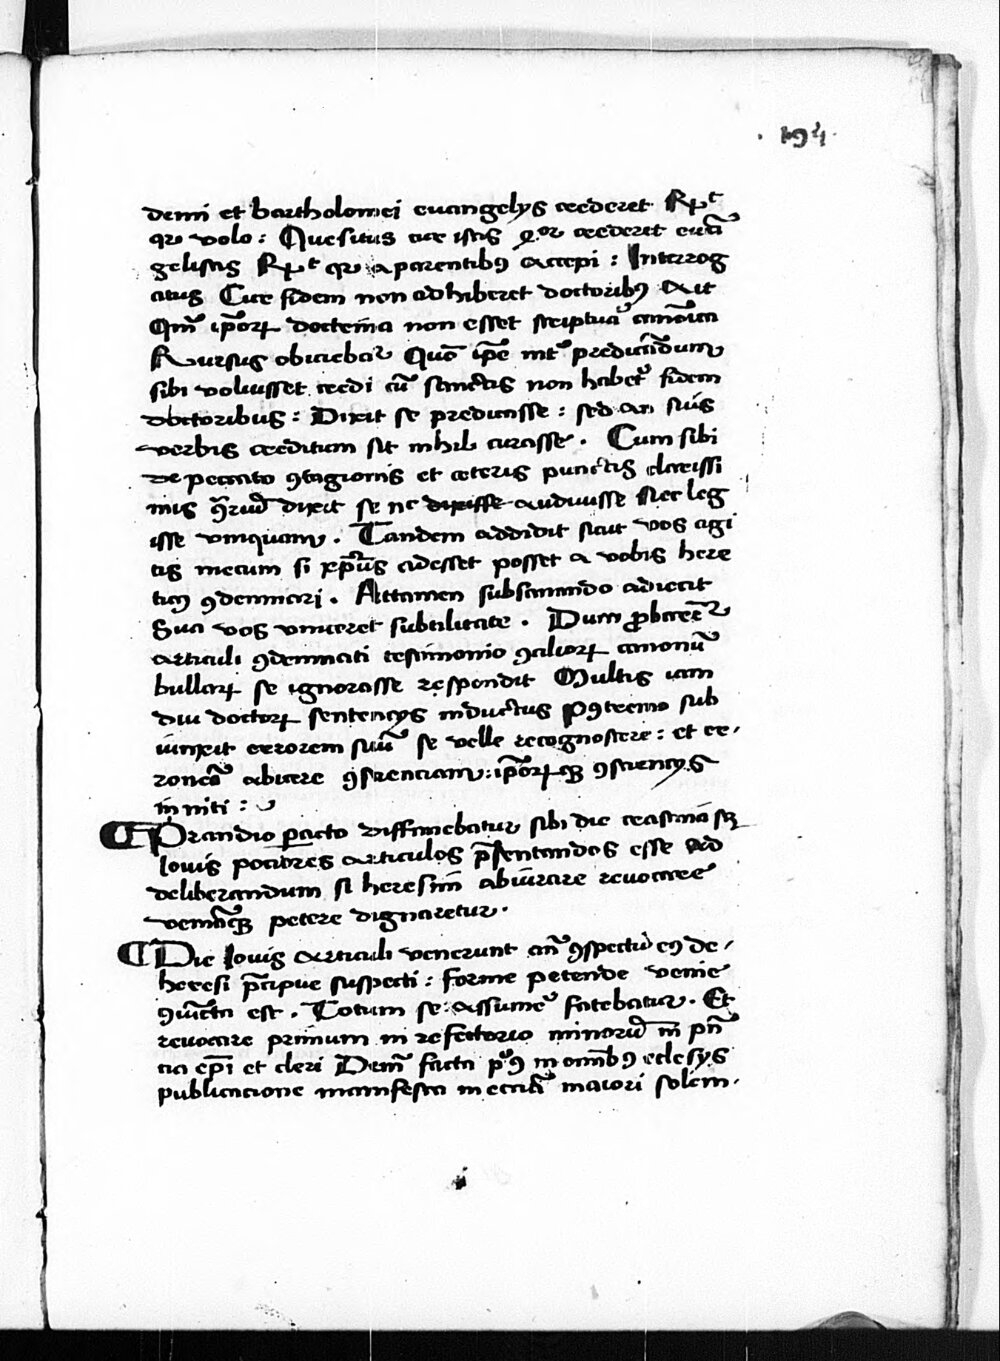 194
demi et bartholomei euangelys crederet Rp̄t
qr volo : Quesitus cur istis q̄tor crederet euā
gelistis Rp̄t qr a parentibꝰ accepi : Interrog
atus Cur fidem non adhiberet doctoribꝰ Ait
Qm̄ ip̄oꝝ doctrina non esset scriptura canōica
Rursus obiciebat Quō ip̄e int̄ predicādum
sibi voluisset credi cū sanctis non habet fidem
doctoribus : Dixit se predicasse : sed an suis
verbis creditum sit nihil curasse . Cum sibi
de peccato ꝯtagionis et ceteris punctis clarissi
mis dixit se nec dixisse audiuisse Nec leg
isse vnquam . Tandem addidit sicut vos agi
tis mecum si xp̄us adesset posset a vobis here
ticꝰ ꝯdemnari . Attamen subsannando adiecit
Sua vos vinceret subtilitate . Dum ꝓbarent̄
articuli ꝯdemnati testimonio ꝯcilioꝝ canonū
bullaꝝ se ignorasse respondit Multis iam
diu doctoꝝ sentencys inductus Pꝰtremo sub
iunxit errorem suū se velle recognoscere : et er-
roneā abicere ꝯscienciam : ip̄oꝝqꝫ ꝯsciencys
inniti :
Prandio peracto diffiniebatur sibi die crastina scꝫ
Iouis pociores articulos p̄sentandos esse Ad
deliberandum si heresim abiurare reuocare
veniāqꝫ petere dignaretur .
Die Iouis articuli venerunt in ꝯspectū eꝰ de -
heresi p̄cipue suspecti : forme petende venie
ꝯiūcta est . Totum se assumē fatebatur . Et
reuocare primum in refectorio minorū in p̄n
cia ep̄i et cleri Deinde facta pꝰ in omībꝰ eclesys
publicacione manifesta in ecciā maiori solem -